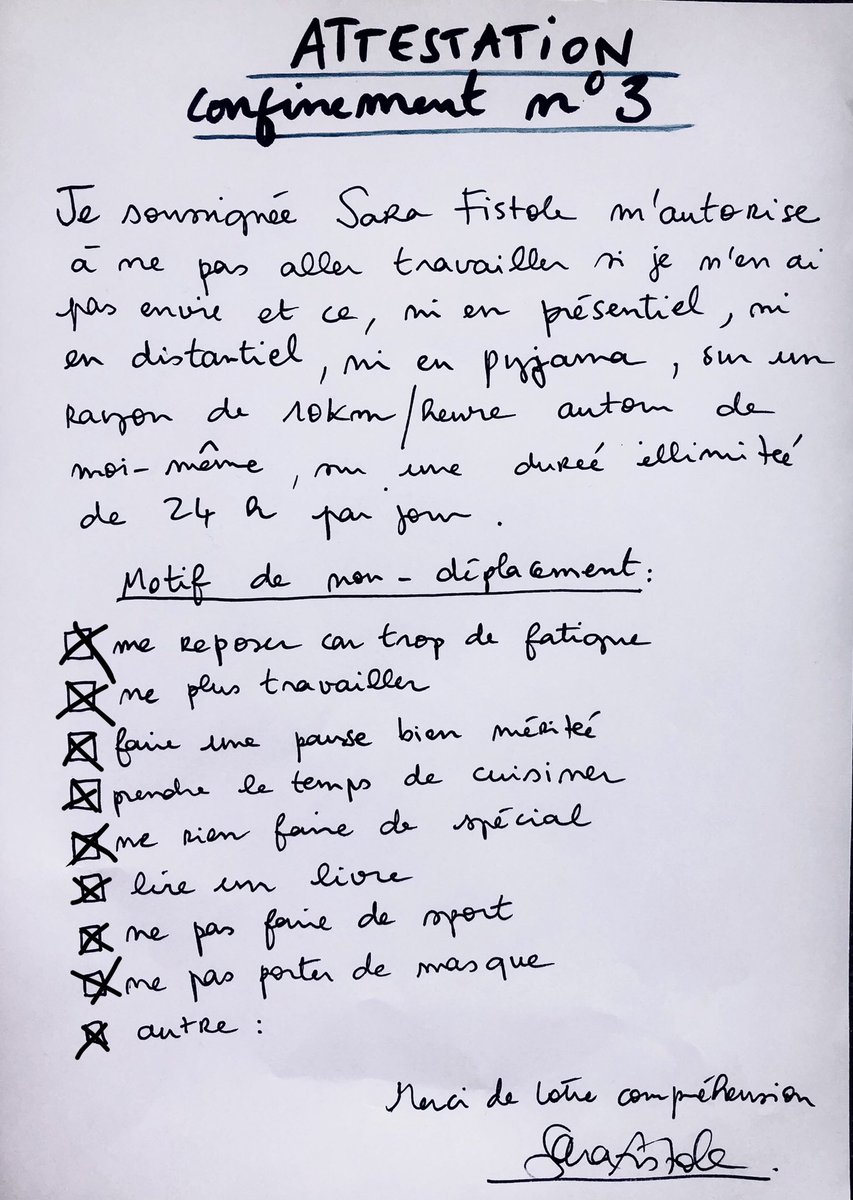 ATTESTATION
confinement n° 3
Je soussignée Sara Fistole m'autorise
à ne pas aller travailler si je n'en ai
pas envie et ce, ni en présentiel, ni
en distantiel, ni en pyjama, sur un
rayon de 10km/heure autour de
moi-même, sur une dureé illimiteé
de 24 h par jour.
Motif de non-déplacement:
me reposer car trop de fatigue
ne plus travailler
faire une pause bien mériteé
prendre le temps de cuisiner
ne rien faire de spécial
lire un livre
ne pas faire de sport
ne pas porter de masque
autre :
Merci de votre compréhension
Sara Fistole.